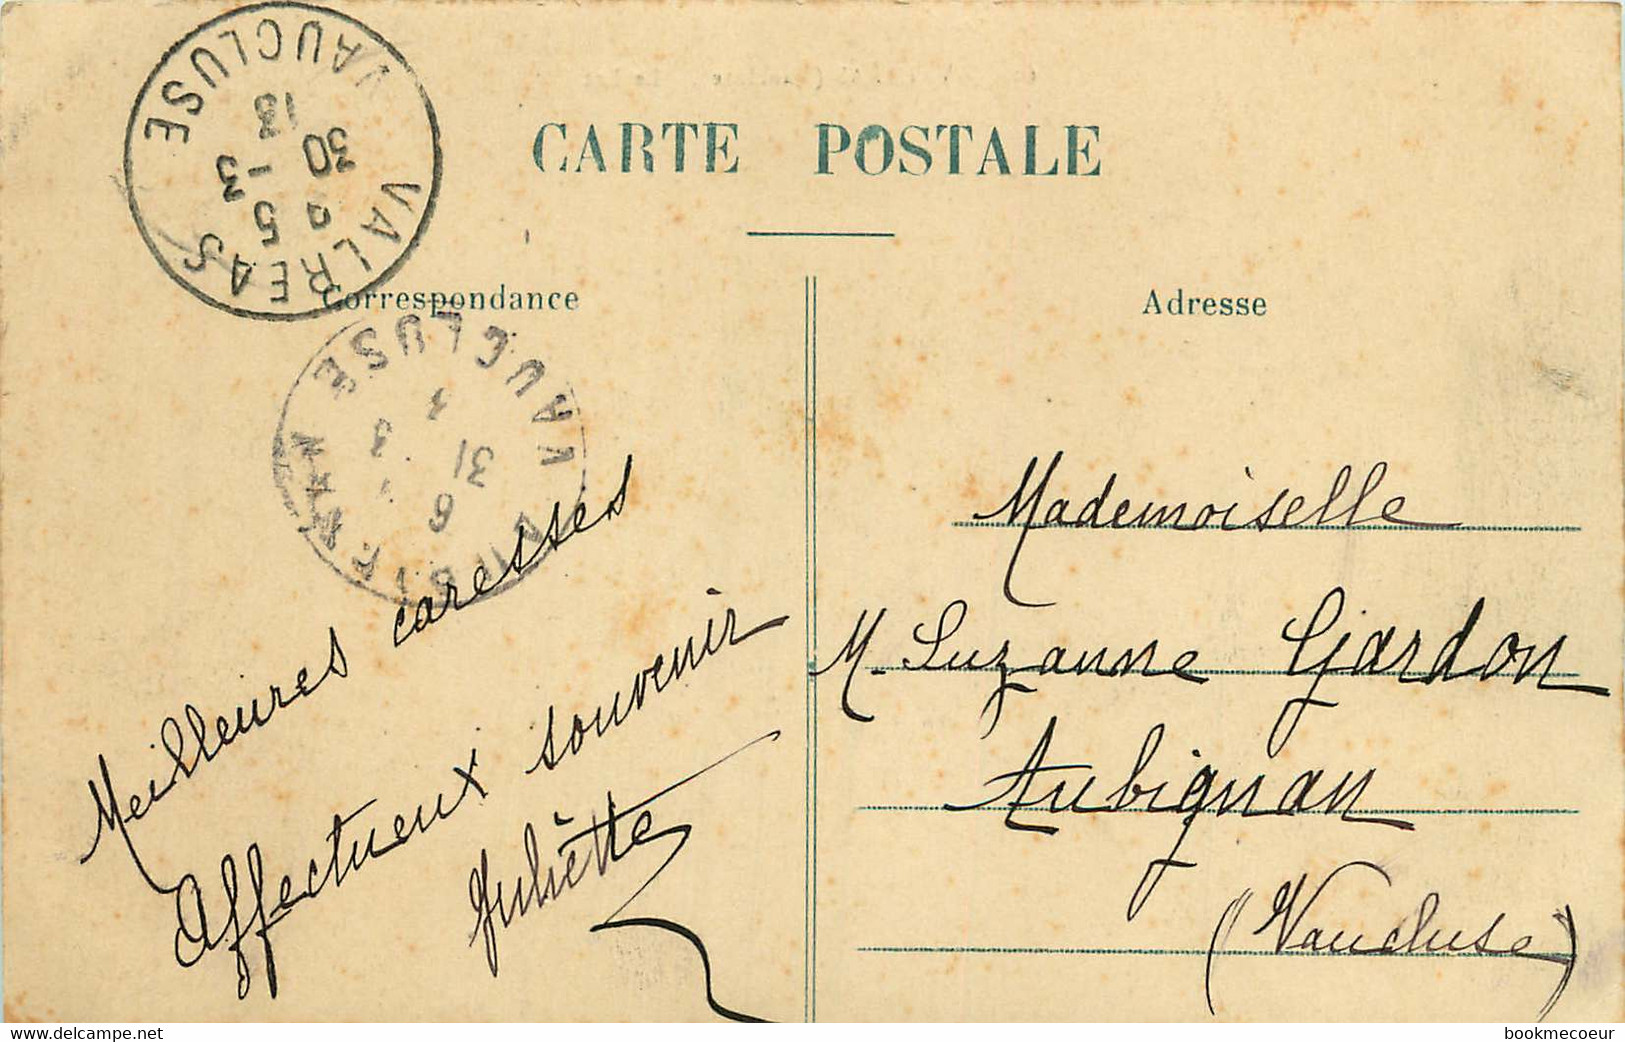 CARTE POSTALE
Correspondance
Adresse
VALREAS
VAUCLUSE
30
5 - 3
13
VAUCLUSE
6
31
3
Meilleures caresses
Affectueux souvenir
Juliètte
Mademoiselle
M. Suzanne Gardon
Aubignan
(Vaucluse)
www.delcampe.net
bookmecoeur